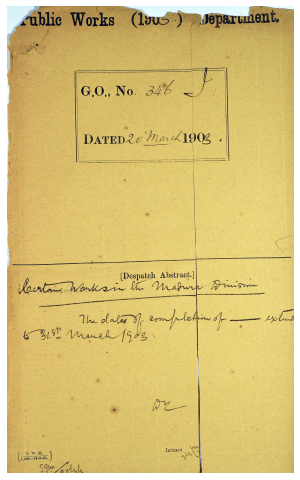 Public Works (1903) Department.
G.O., No. 346 I
DATED 20 March 1903.
[Despatch Abstract.]
Certain Works in the Madura Division
The dates of completion of — extend
to 31st March 1903
Indexed